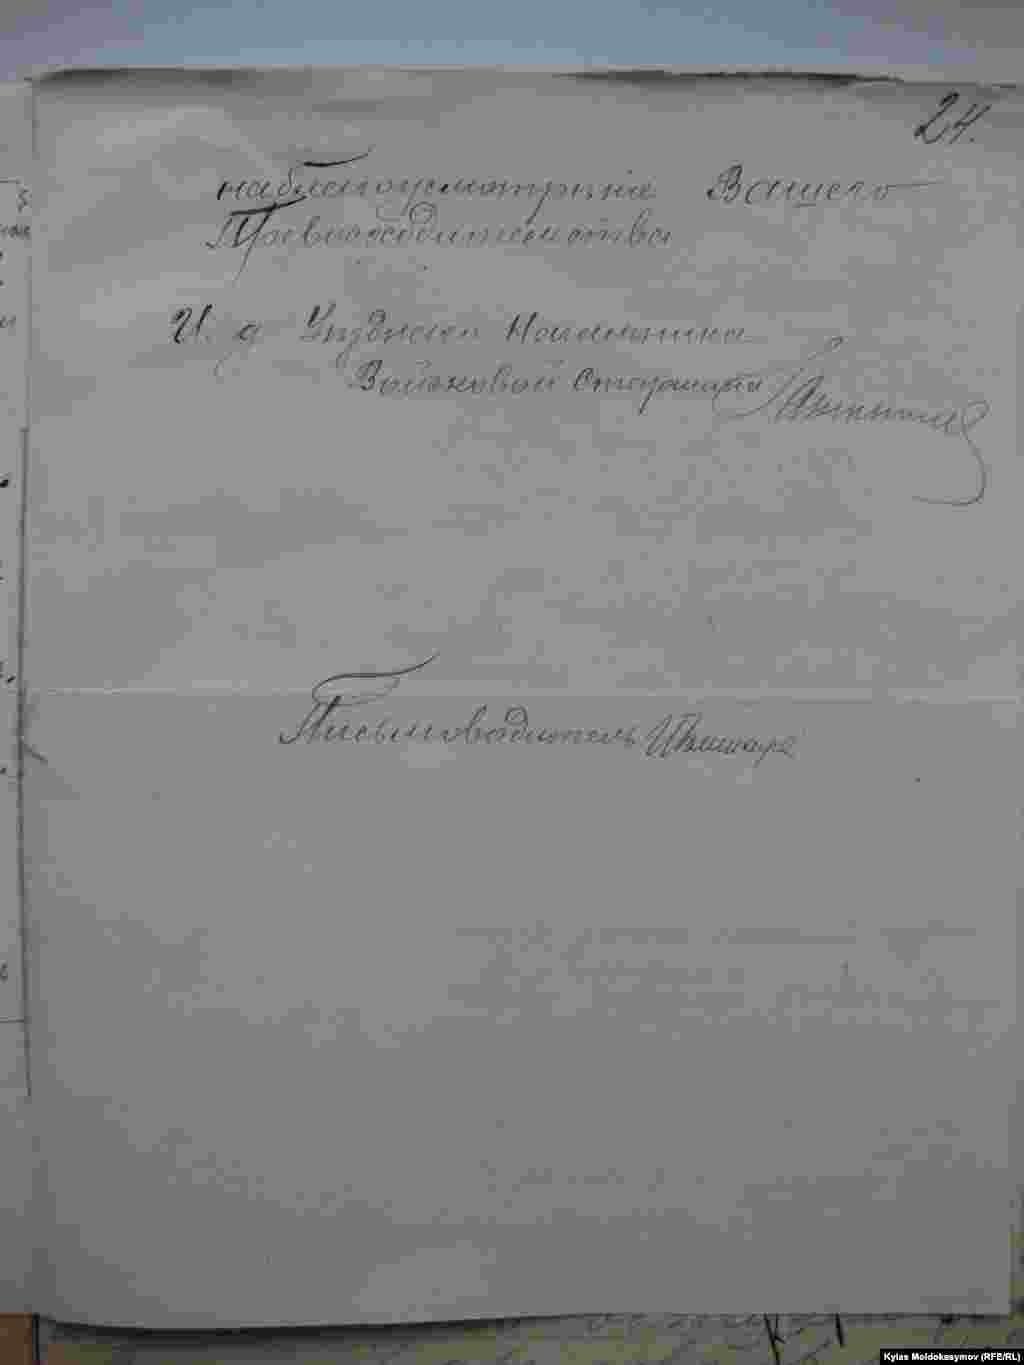 24.
на благоусмотрѣніе Вашего
Превосходительства
И. д. Уѣзднаго Начальника
Войсковой Старшина
Письмоводитель
Kylas Moldokasymov (RFE/RL)